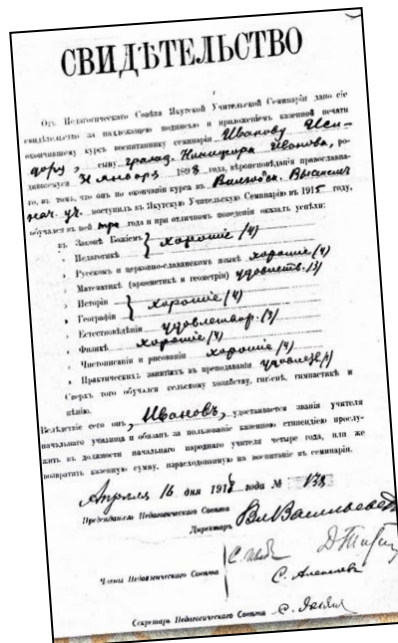 СВИДѢТЕЛЬСТВО
Отъ Педагогическаго Совѣта Якутской Учительской Семинаріи дано сіе
свидѣтельство за надлежащею подписью и приложеніемъ казенной печати
окончившему курсъ воспитаннику семинаріи Иванову Иси-
дору, сыну гражд. Никифора Иванова, ро-
дившемуся 31 января 1898 года, вѣроисповѣданія православна-
го, въ томъ, что онъ по окончаніи курса въ
нач. уч. поступилъ въ Якутскую Учительскую Семинарію въ 1915 году,
обучался въ ней три года и при отличномъ поведеніи оказалъ успѣхи:
въ Законѣ Божіемъ } хорошіе (4)
„ Педагогикѣ
„ Русскомъ и церковно-славянскомъ языкѣ хорошіе (4)
„ Математикѣ (арифметикѣ и геометріи) удовлетв. (3)
„ Исторіи } хорошіе (4)
„ Географіи
„ Естествовѣдѣніи удовлетвор. (3)
„ Физикѣ хорошіе (4)
„ Чистописаніи и рисованіи хорошіе (4)
„ Практическихъ занятіяхъ въ преподаваніи
Сверхъ того обучался сельскому хозяйству, гигіенѣ, гимнастикѣ и
пѣнію.
Вслѣдствіе сего онъ, Ивановъ, удостаивается званія учителя
начальнаго училища и обязанъ за пользованіе казенною стипендіею прослу-
жить въ должности начальнаго народнаго учителя четыре года, или же
возвратить казенную сумму, израсходованную на воспитаніе въ семинаріи.
Апрѣля 16 дня 1918 года № 138
Предсѣдатель Педагогическаго Совѣта
Директоръ Вл. Васильевъ
Члены Педагогическаго Совѣта
С. Алексѣевъ
Секретарь Педагогическаго Совѣта